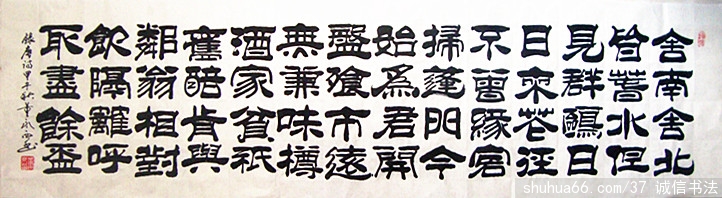 舍南舍北
皆萅水但
見群鷗日
日來花徑
不曾緣客
掃蓬門今
始爲君開
盤飧市遠
無兼味樽
酒家貧祇
舊醅肯與
鄰翁相對
飲隔離呼
取盡餘盃
錄唐詩甲午秋
shuhua66.com/37 诚信书法